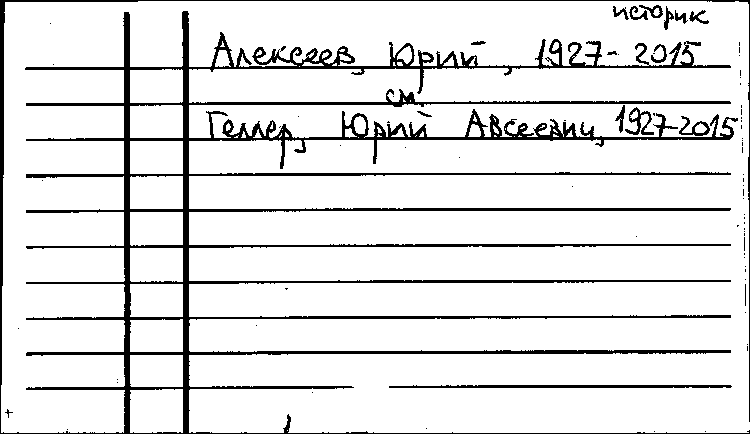 историк
Алексеев, Юрий, 1927-2015
см.
Геллер, Юрий Авсеевич, 1927-2015